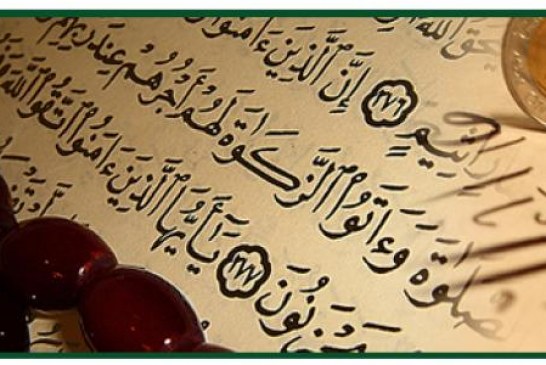 ثِيمٍ ٢٧٦ إِنَّ ٱلَّذِينَ ءَامَنُوا
صَّلَوٰةَ وَءَاتَوُا۟ ٱلزَّكَوٰةَ لَهُمْ أَجْرُهُمْ عِندَ رَبِّهِمْ
حْزَنُونَ ٢٧٧ يَٰٓأَيُّهَا ٱلَّذِينَ ءَامَنُوا۟ ٱتَّقُوا۟ ٱللَّهَ